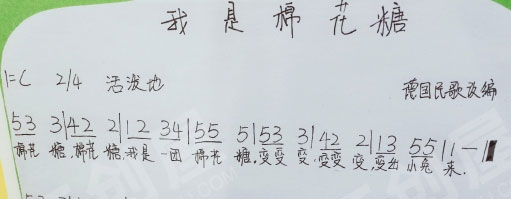 我是棉花糖
1=C 2/4 活泼地 德国民歌改编
53 3|42 2|12 34|55 5|53 3|42 2|13 55|1-‖
棉花 糖,棉花 糖,我是 一团 棉花 糖.变变 变,变变 变,变出 小兔 来.